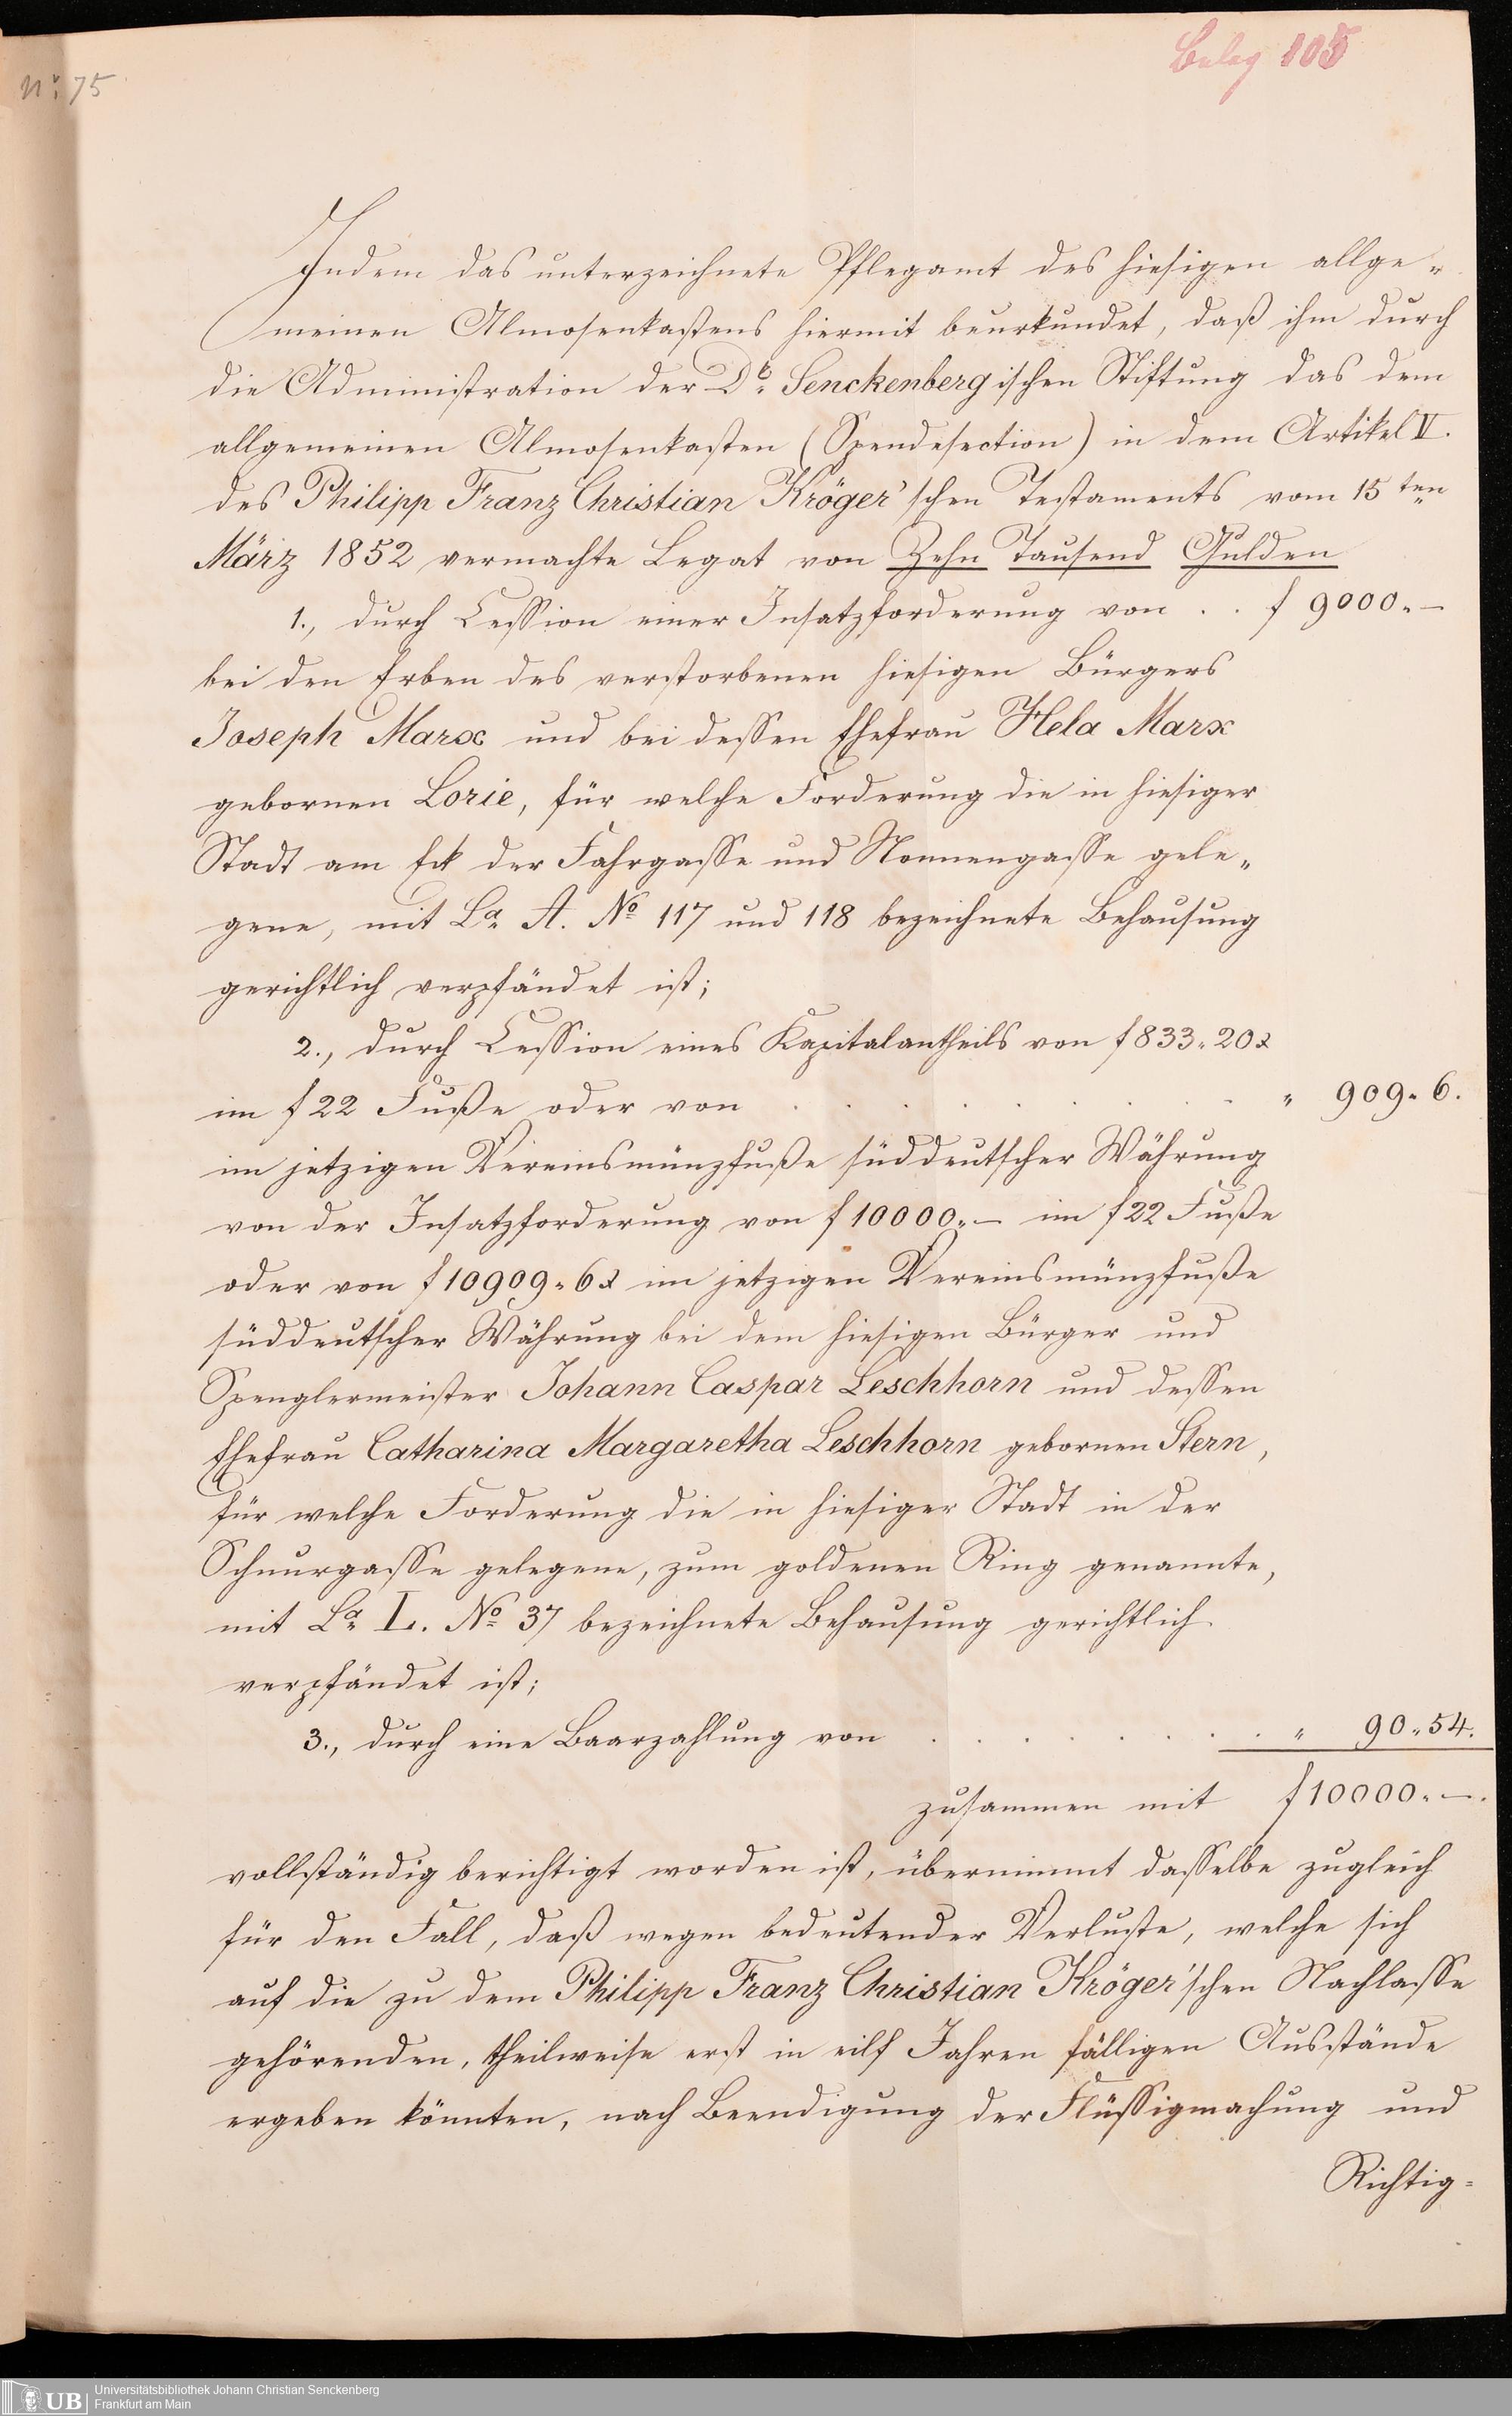 No. 75
Beleg 105
Indem das unterzeichnete Pflegamt des hiesigen allge-
meinen Almosenkastens hiermit beurkundet, daß ihm durch
die Administration der Dr. Senckenbergischen Stiftung das dem
allgemeinen Almosenkasten (Spendesection) in dem Artikel II.
des Philipp Franz Christian Kröger'schen Testaments vom 15ten
März 1852 vermachte Legat von Zehn Tausend Gulden
1., durch Cession einer Insatzforderung von . . f 9000.-
bei den Erben des verstorbenen hiesigen Bürgers
Joseph Marx und bei dessen Ehefrau Hela Marx
gebornen Lorie, für welche Forderung die in hiesiger
Stadt am Eck der Fahrgasse und Nonnengasse gele-
gene, mit La. A. No. 117 und 118 bezeichnete Behausung
gerichtlich verpfändet ist;
2., durch Cession eines Kapitalantheils von f 833.20x
im f 22 Fuße oder von . . . . . . . . . " 909.6.
im jetzigen Vereinsmünzfuße süddeutscher Währung
von der Insatzforderung von f 10000.- im f 22 Fuße
oder von f 10909.6x im jetzigen Vereinsmünzfuße
süddeutscher Währung bei dem hiesigen Bürger und
Spenglermeister Johann Caspar Leschhorn und dessen
Ehefrau Catharina Margaretha Leschhorn gebornen Stern,
für welche Forderung die in hiesiger Stadt in der
Schnurgasse gelegene, zum goldenen Ring genannte,
mit La. L. No. 37 bezeichnete Behausung gerichtlich
verpfändet ist;
3., durch eine Baarzahlung von . . . . . . . . " 90.54.
zusammen mit f 10000.-.
vollständig berichtigt worden ist, übernimmt dasselbe zugleich
für den Fall, daß wegen bedeutender Verluste, welche sich
auf die zu dem Philipp Franz Christian Kröger'schen Nachlasse
gehörenden, theilweise erst in eilf Jahren fälligen Ausstände
ergeben könnten, nach Beendigung der Flüssigmachung und
Richtig-
UB
Universitätsbibliothek Johann Christian Senckenberg
Frankfurt am Main